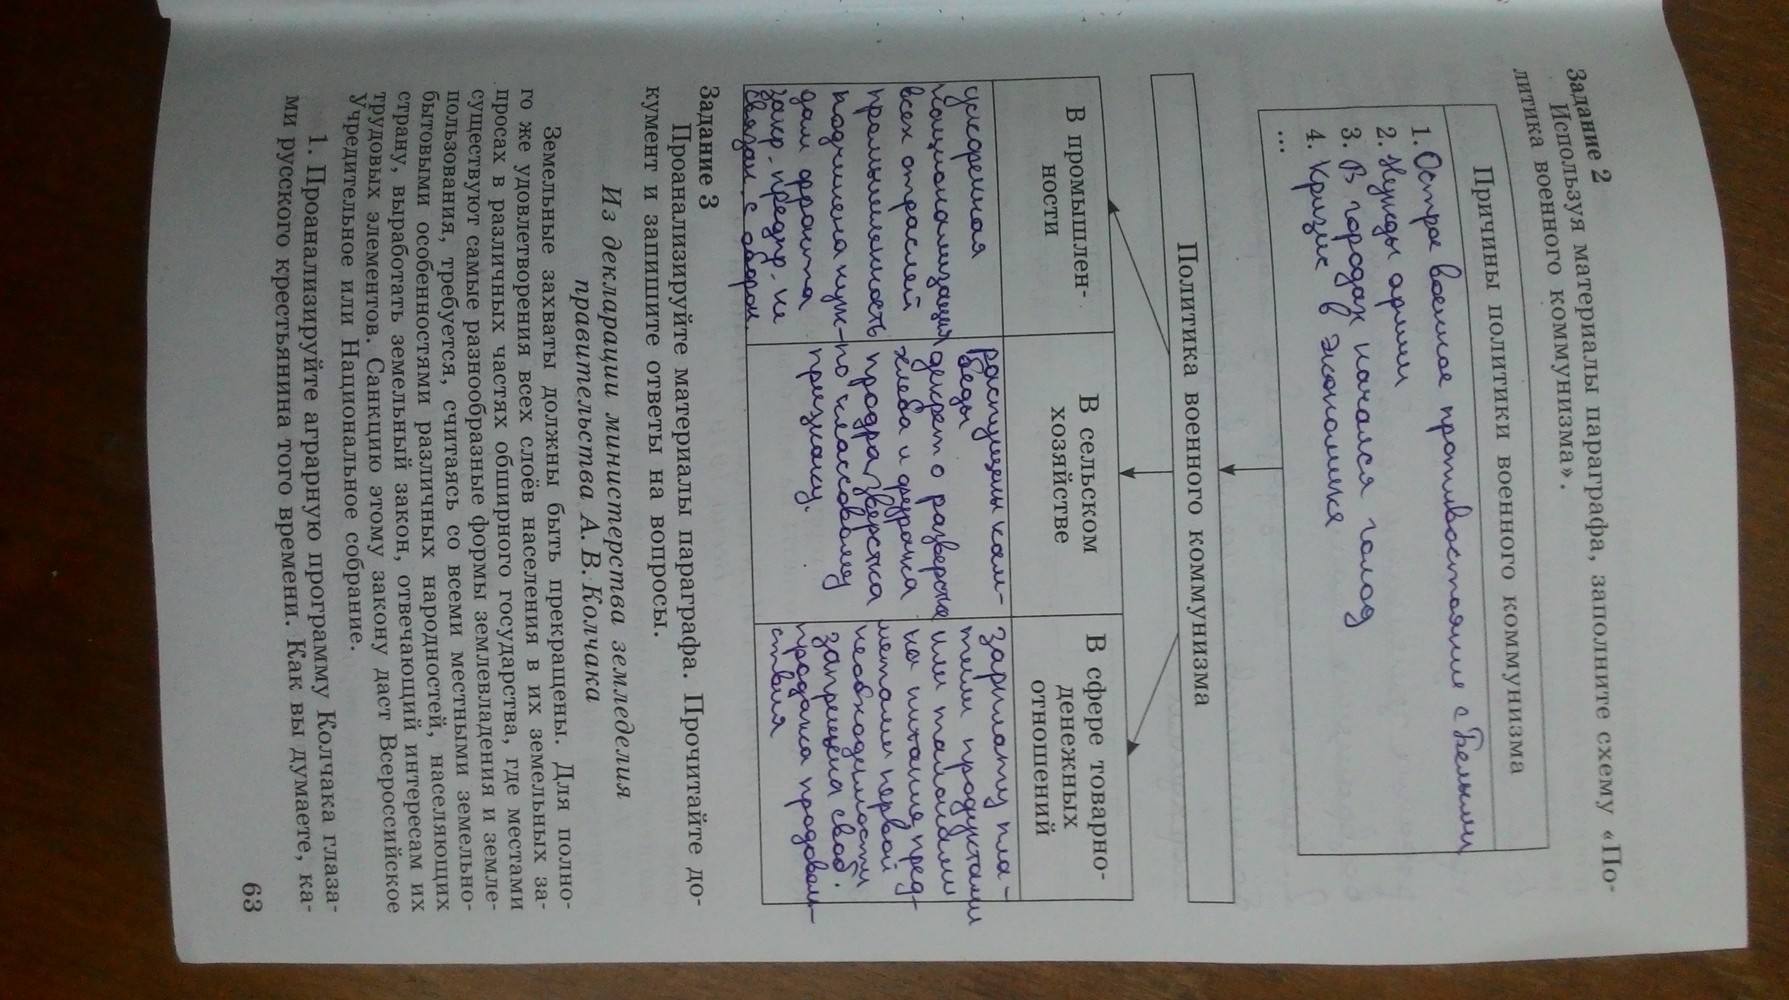 Задание 2
Используя материалы параграфа, заполните схему «По-
литика военного коммунизма».
Причины политики военного коммунизма
1. Острое военное противостояние с Белыми
2. Нужды армии
3. В городах начался голод
4. Кризис в экономике
...
Политика военного коммунизма
В промышлен-
ности
ускоренная
национализация
всех отраслей
промышленность
подчинена нуж-
дам фронта
закр. предпр. не
связан. с оборон.
В сельском
хозяйстве
распущены ком-
беды
декрет о разверстке
хлеба и фуража
продразверстка
по классовому
признаку.
В сфере товарно-
денежных
отношений
зарплату пла-
тили продуктами
или талонами
на питание, пред-
метами первой
необходимости
запрещена своб.
продажа продоволь-
ствия
Задание 3
Проанализируйте материалы параграфа. Прочитайте до-
кумент и запишите ответы на вопросы.
Из декларации министерства земледелия
правительства А. В. Колчака
Земельные захваты должны быть прекращены. Для полно-
го же удовлетворения всех слоёв населения в их земельных за-
просах в различных частях обширного государства, где местами
существуют самые разнообразные формы землевладения и земле-
пользования, требуется, считаясь со всеми местными земельно-
бытовыми особенностями различных народностей, населяющих
страну, выработать земельный закон, отвечающий интересам их
трудовых элементов. Санкцию этому закону даст Всероссийское
Учредительное или Национальное собрание.
1. Проанализируйте аграрную программу Колчака глаза-
ми русского крестьянина того времени. Как вы думаете, ка-
63